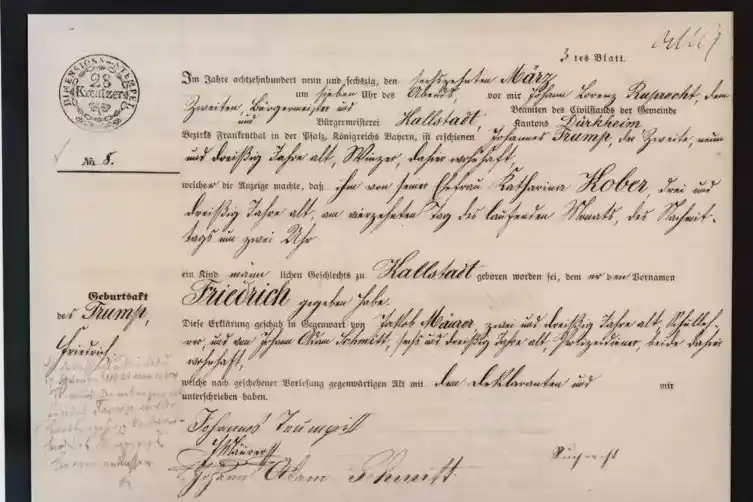 3 tes Blatt.
DIMENSIONS-STEMPEL
28
Kreutzers
Im Jahre achtzehnhundert neun und sechszig, den sechszehnten März
um sieben Uhr des Abends, vor mir Johann Lorenz Ruprecht, dem
Zweiten, Bürgermeister und Beamten des Civilstands der Gemeinde
und Bürgermeisterei Kallstadt, Kantons Dürkheim
Bezirks Frankenthal in der Pfalz, Königreichs Bayern, ist erschienen Johannes Trump, der Zweite, neun
No. 8.
und dreißig Jahre alt, Winzer, dahier wohnhaft,
welcher die Anzeige machte, daß ihm von seiner Ehefrau Katharina Kober, drei und
dreißig Jahre alt, am vierzehnten Tag des laufenden Monats, des Nachmit-
tags um zwei Uhr
ein Kind männlichen Geschlechts zu Kallstadt geboren worden sei, dem er den Vornamen
Geburtsakt
des Trump,
Friedrich
Friedrich gegeben habe.
Diese Erklärung geschah in Gegenwart von Jakob Mäurer, zwei und dreißig Jahre alt, Schulleh-
rer, und von Johann Adam Schmitt, sechs und dreißig Jahre alt, Polizeidiener, beide dahier
wohnhaft,
welche nach geschehener Vorlesung gegenwärtigen Akt mit dem Deklaranten und mir
unterschrieben haben.
Johannes Trump II
Mäurer
Johann Adam Schmitt
Ruprecht